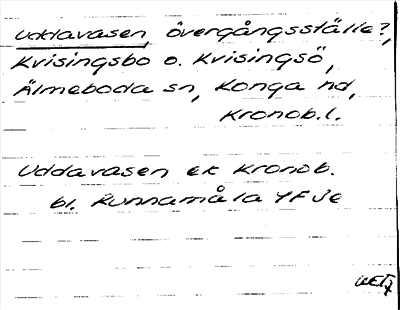 Uddavasen, övergångsställe?,
Kvisingsbo o. Kvisingsö,
Älmeboda sn, Konga hd,
Kronob.l.
Uddavasen ek Kronob.
bl. Runnamåla YF Je